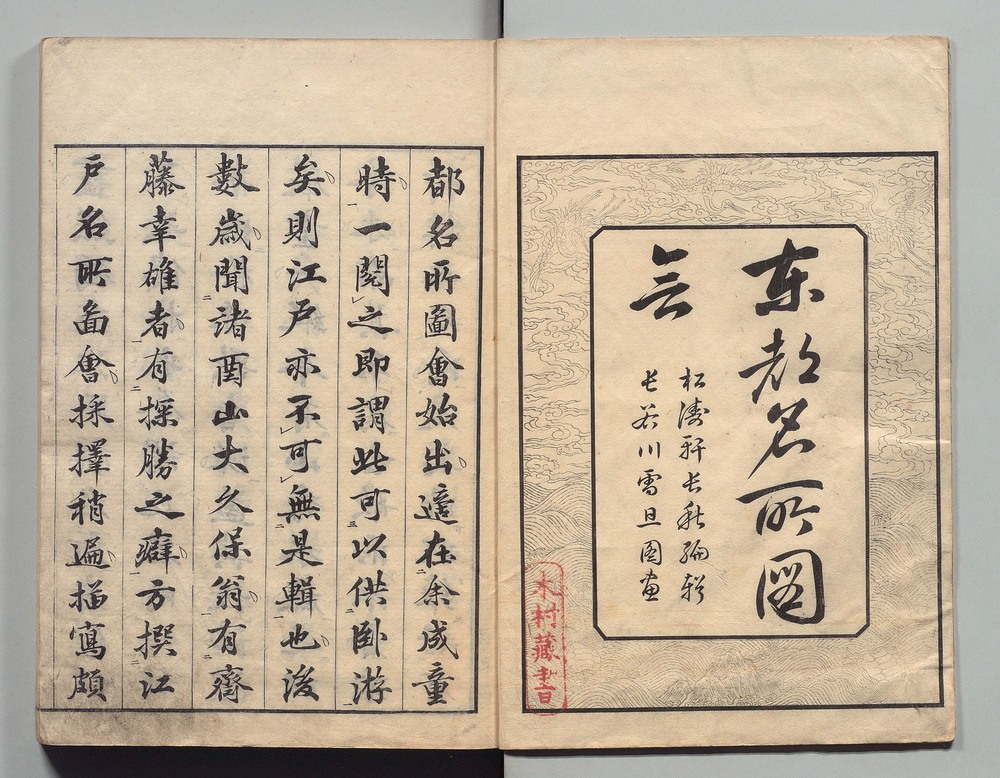 東都名所圖
會
松濤軒長秋編輯
長谷川雪旦圖画
木村藏書
都名所圖會始出適在余成童
時一閲之即謂此可以供臥游
矣則江戸亦不可無是輯也後
數歳聞諸酉山大久保翁有齋
藤幸雄者有探勝之癖方撰江
戸名所圖會採擇稍遍描寫頗